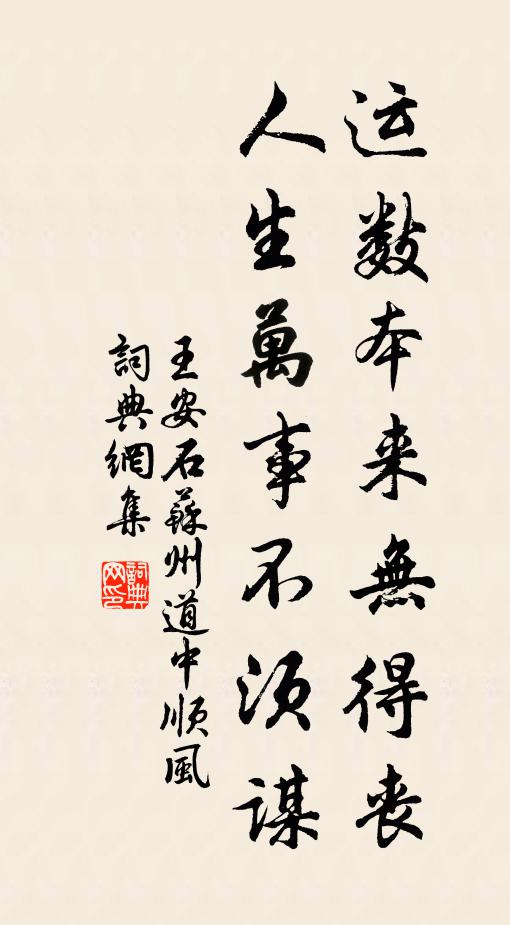 运数本来無得丧
人生萬事不须谋
王安石蘇州道中順風
詞典網集
詞典
网印